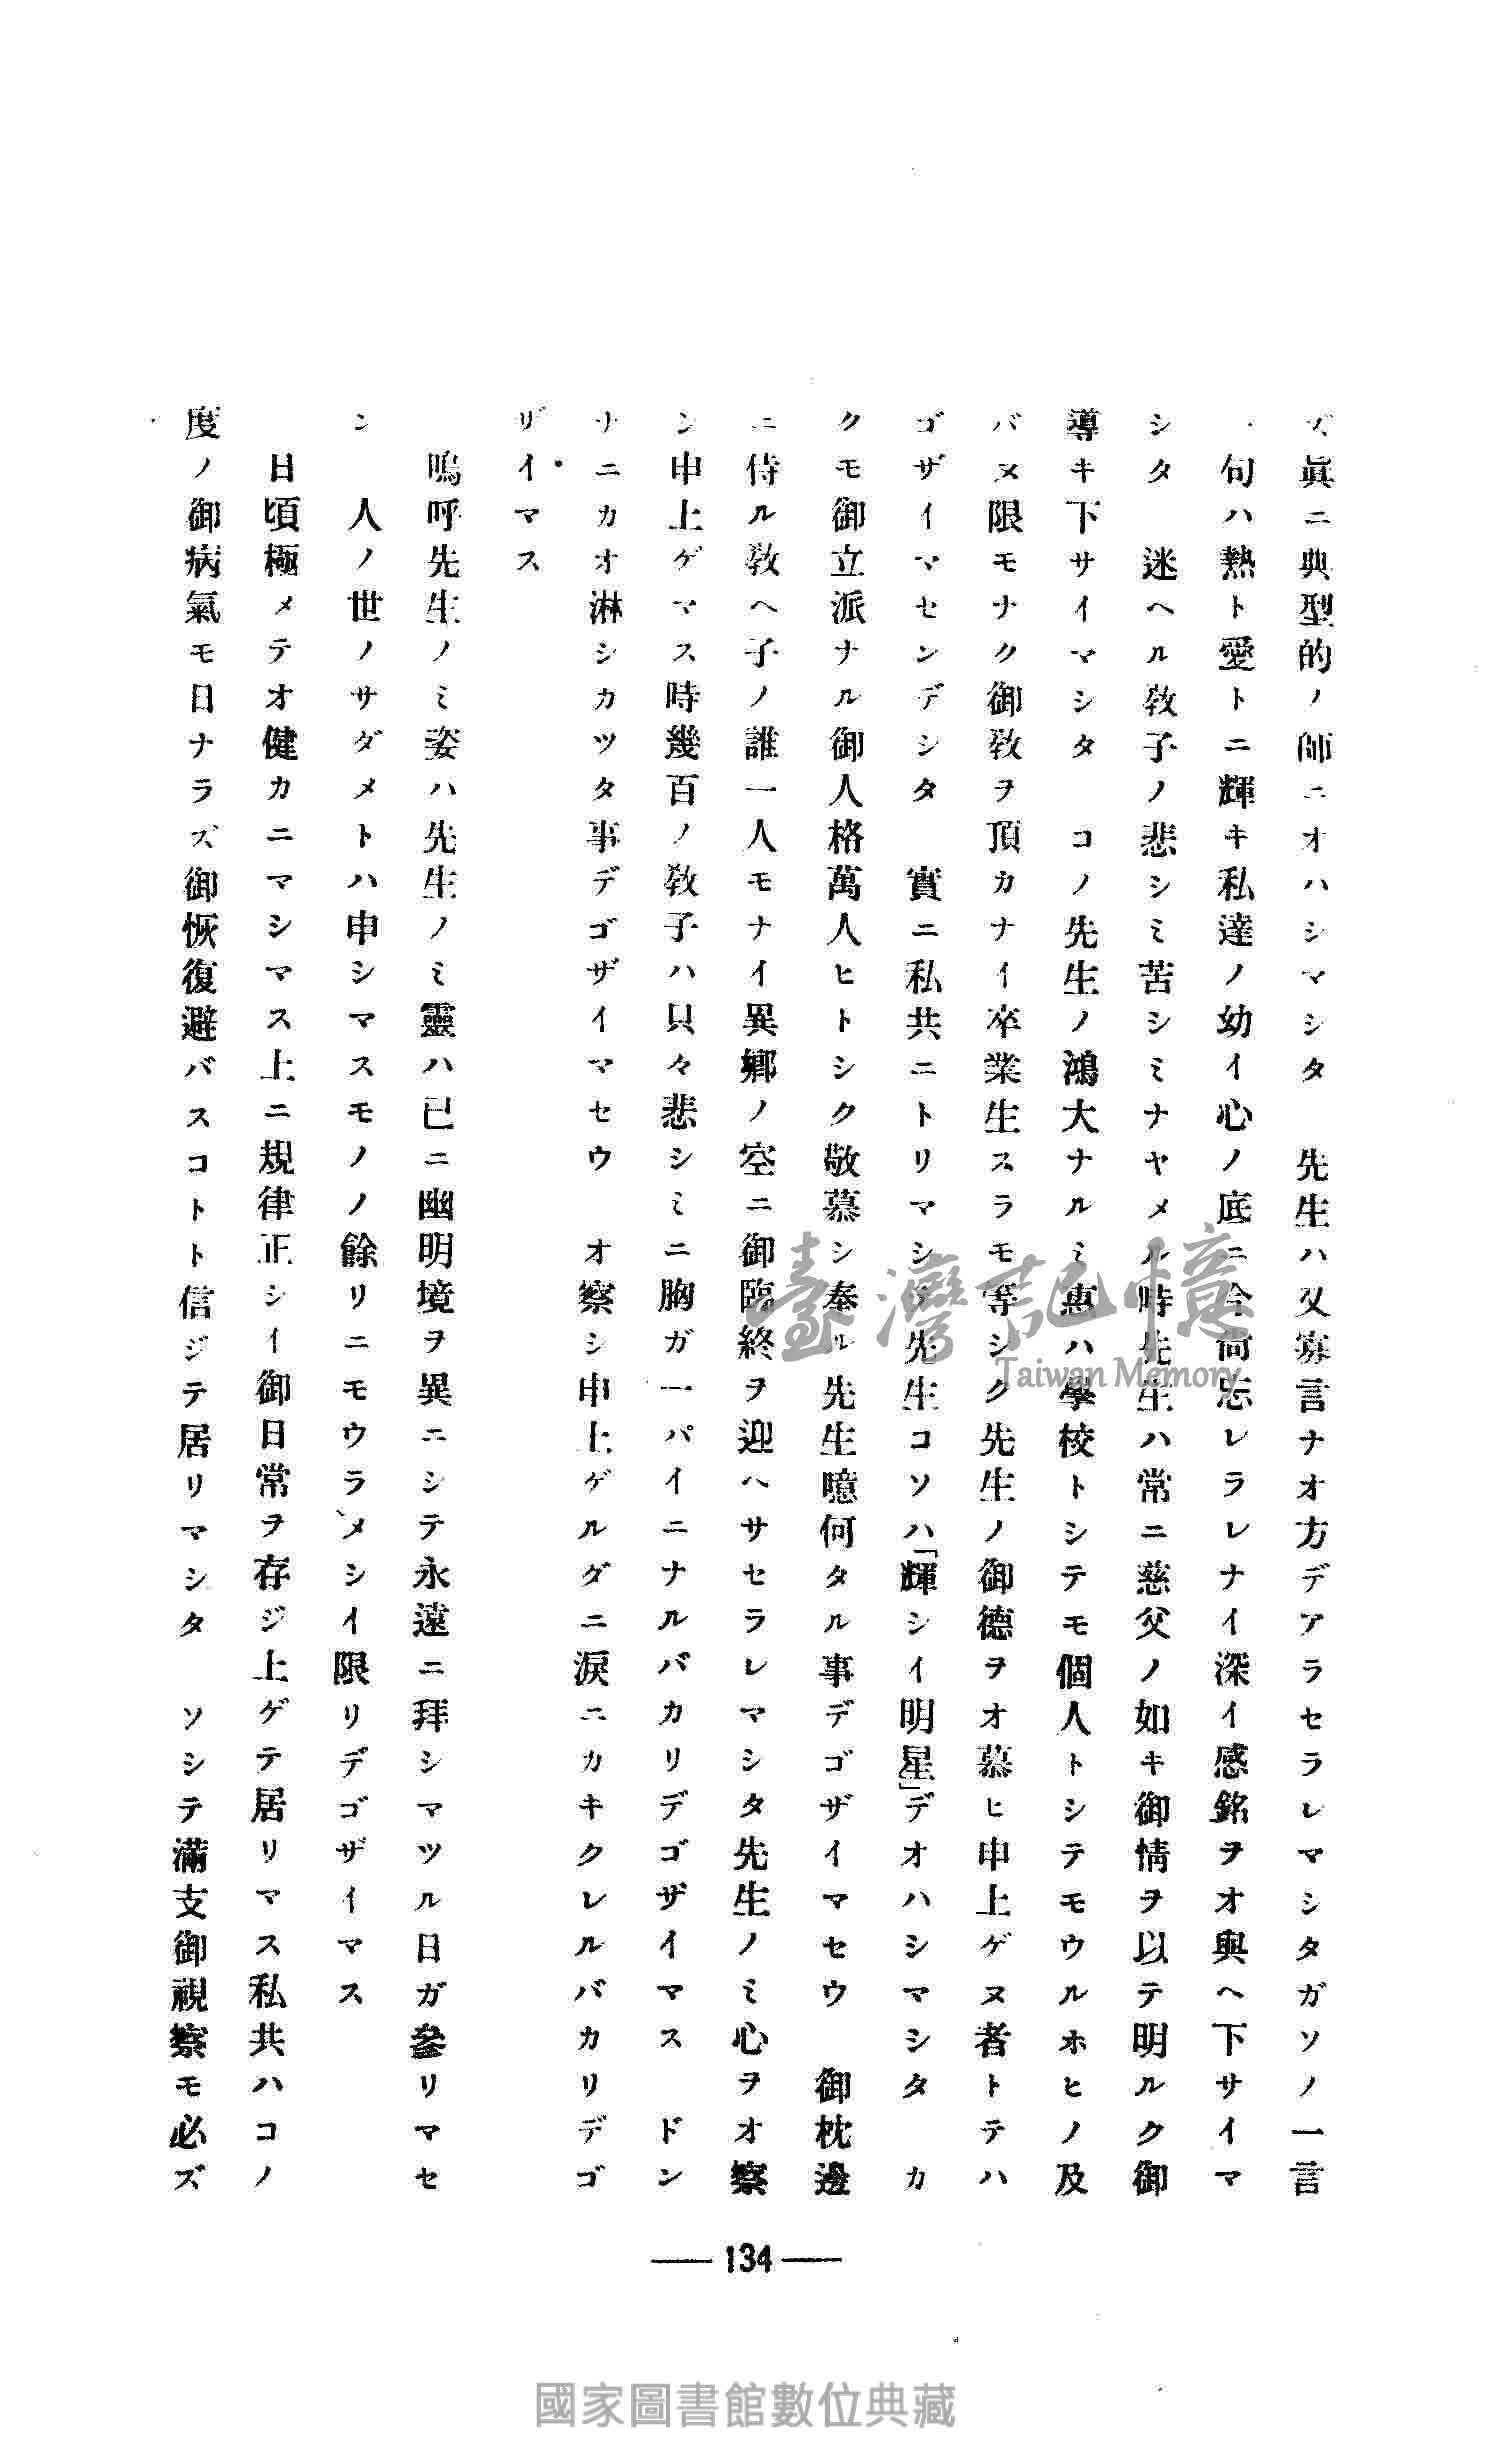 ズ眞ニ典型的ノ師ニオハシマシタ　先生ハ又寡言ナオ方デアラセラレマシタガソノ一言
一句ハ熱ト愛トニ輝キ私達ノ幼イ心ノ底ニ今尚忘レラレナイ深イ感銘ヲオ與ヘ下サイマ
シタ　迷ヘル敎子ノ悲シミ苦シミナヤメル時先生ハ常ニ慈父ノ如キ御情ヲ以テ明ルク御
導キ下サイマシタ　コノ先生ノ鴻大ナルミ惠ハ學校トシテモ個人トシテモウルホヒノ及
バヌ限モナク御敎ヲ頂カナイ卒業生スラモ等シク先生ノ御德ヲオ慕ヒ申上ゲヌ者トテハ
ゴザイマセンデシタ　實ニ私共ニトリマシテ先生コソハ「輝シイ明星」デオハシマシタ　カ
クモ御立派ナル御人格萬人ヒトシク敬慕シ奉ル先生噫何タル事デゴザイマセウ　御枕邊
ニ侍ル敎ヘ子ノ誰一人モナイ異鄉ノ空ニ御臨終ヲ迎ヘサセラレマシタ先生ノミ心ヲオ察
シ申上ゲマス時幾百ノ敎子ハ只々悲シミニ胸ガ一パイニナルバカリデゴザイマス　ドン
ナニカオ淋シカツタ事デゴザイマセウ　オ察シ申上ゲルダニ淚ニカキクレルバカリデゴ
ザイマス
嗚呼先生ノミ姿ハ先生ノミ靈ハ已ニ幽明境ヲ異ニシテ永遠ニ拜シマツル日ガ參リマセ
ン　人ノ世ノサダメトハ申シマスモノノ餘リニモウラメシイ限リデゴザイマス
日頃極メテオ健カニマシマス上ニ規律正シイ御日常ヲ存ジ上ゲテ居リマス私共ハコノ
度ノ御病氣モ日ナラズ御恢復遊バスコトト信ジテ居リマシタ　ソシテ滿支御視察モ必ズ
134
臺灣記憶
Taiwan Memory
國家圖書館數位典藏